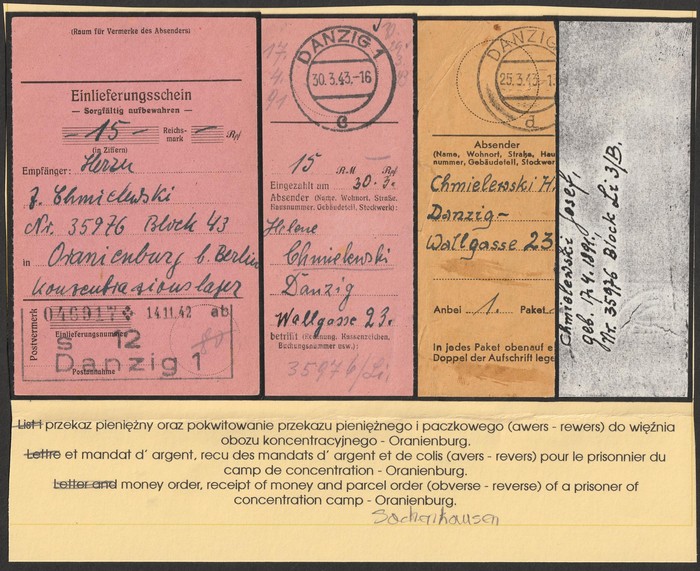 (Raum für Vermerke des Absenders)
Einlieferungsschein
— Sorgfältig aufbewahren —
— 15 — Reichs-
mark — Rpf
(in Ziffern)
Empfänger: Herrn
J. Chmielewski
Nr. 35976 Block 43
in Oranienburg b. Berlin
Konzentrazionslager
046917 14.11.42 ab
Postvermerk
Einlieferungsnummer
S 12
Danzig 1
Postannahme
80
17.
4.
91
DANZIG 1
30.3.43.-16
c
15 RM — Rpf
Eingezahlt am 30.3.
Absender (Name, Wohnort, Straße,
Hausnummer, Gebäudeteil, Stockwerk):
Helene
Chmielewski
Danzig
Wallgasse 23.
betrifft (Rechnung, Kassenzeichen,
Buchungsnummer usw.):
35976/Li.
DANZIG
25.3.43.-1
d
Absender
(Name, Wohnort, Straße, Hau
nummer, Gebäudeteil, Stockwerk
Chmielewski H.
Danzig-
Wallgasse 23
Anbei 1. Paket
In jedes Paket obenauf e
Doppel der Aufschrift lege
Chmielewski Josef,
geb. 17.4.1891.
Nr. 35976 Block Li 3/B.
List i przekaz pieniężny oraz pokwitowanie przekazu pieniężnego i paczkowego (awers - rewers) do więźnia
obozu koncentracyjnego - Oranienburg.
Lettre et mandat d' argent, recu des mandats d' argent et de colis (avers - revers) pour le prisonnier du
camp de concentration - Oranienburg.
Letter and money order, receipt of money and parcel order (obverse - reverse) of a prisoner of
concentration camp - Oranienburg.
Sachenhausen